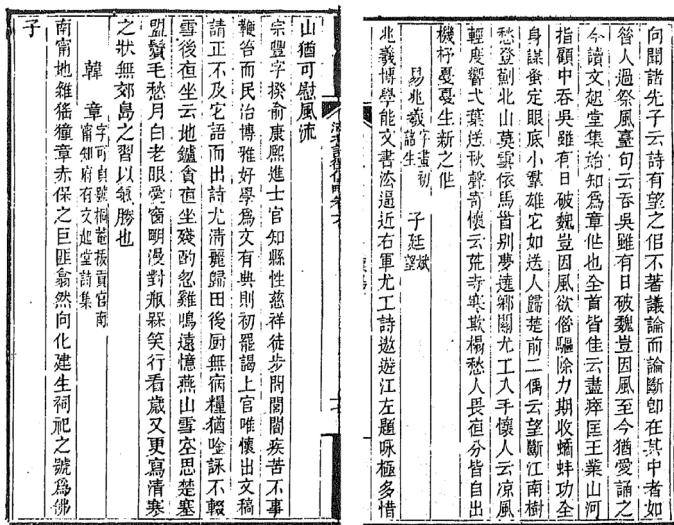 向聞諸先子云詩有望之但不著議論而論斷卽在其中者如
昝人過祭風臺句云吞吳雖有日破魏豈因風至今猶愛誦之
今讀文起堂集始知爲章作也全首皆佳云盡瘁匡王業山河
指顧中吞吳雖有日破魏豈因風欲俗驅除力期收蟜蚌功全
身謀蚤定眼底小羣雄它如送人歸楚前二偶云望斷江南樹
愁登薊北山莫雲依馬首別夢遠鄉關尤工入手懷人云凉風
輕度響弌葉送秋聲寄懷云荒寺寒欺榻愁人畏夜分皆自出
機杼戞戞生新之作
易兆羲字畫初諸生 子廷斌望
兆羲博學能文書法逼近右軍尤工詩遨遊江左題咏極多惜
山猶可慰風流
宗豐字揆俞康熙進士官知縣性慈祥徒步問閭閻疾苦不事
鞭笞而民治博雅好學爲文有典則初罷謁上官唯懷出文稿
請正不及它語而出詩尤淸麗歸田後厨無㾕糧猶唫詠不輟
雪後夜坐云地鑪貪夜坐殘酌忽雞鳴遠憶燕山雪空思楚塞
盟鬢毛愁月白老眼愛窗明漫對瓶罙笑行看歲又更寫清寒
之狀無郊島之習以氣勝也
韓章字可貞號桐菴拔貢官南甯知府有文起堂詩集
南甯地雜猺獞章赤保之巨匪翕然向化建生祠祀之號爲佛
子